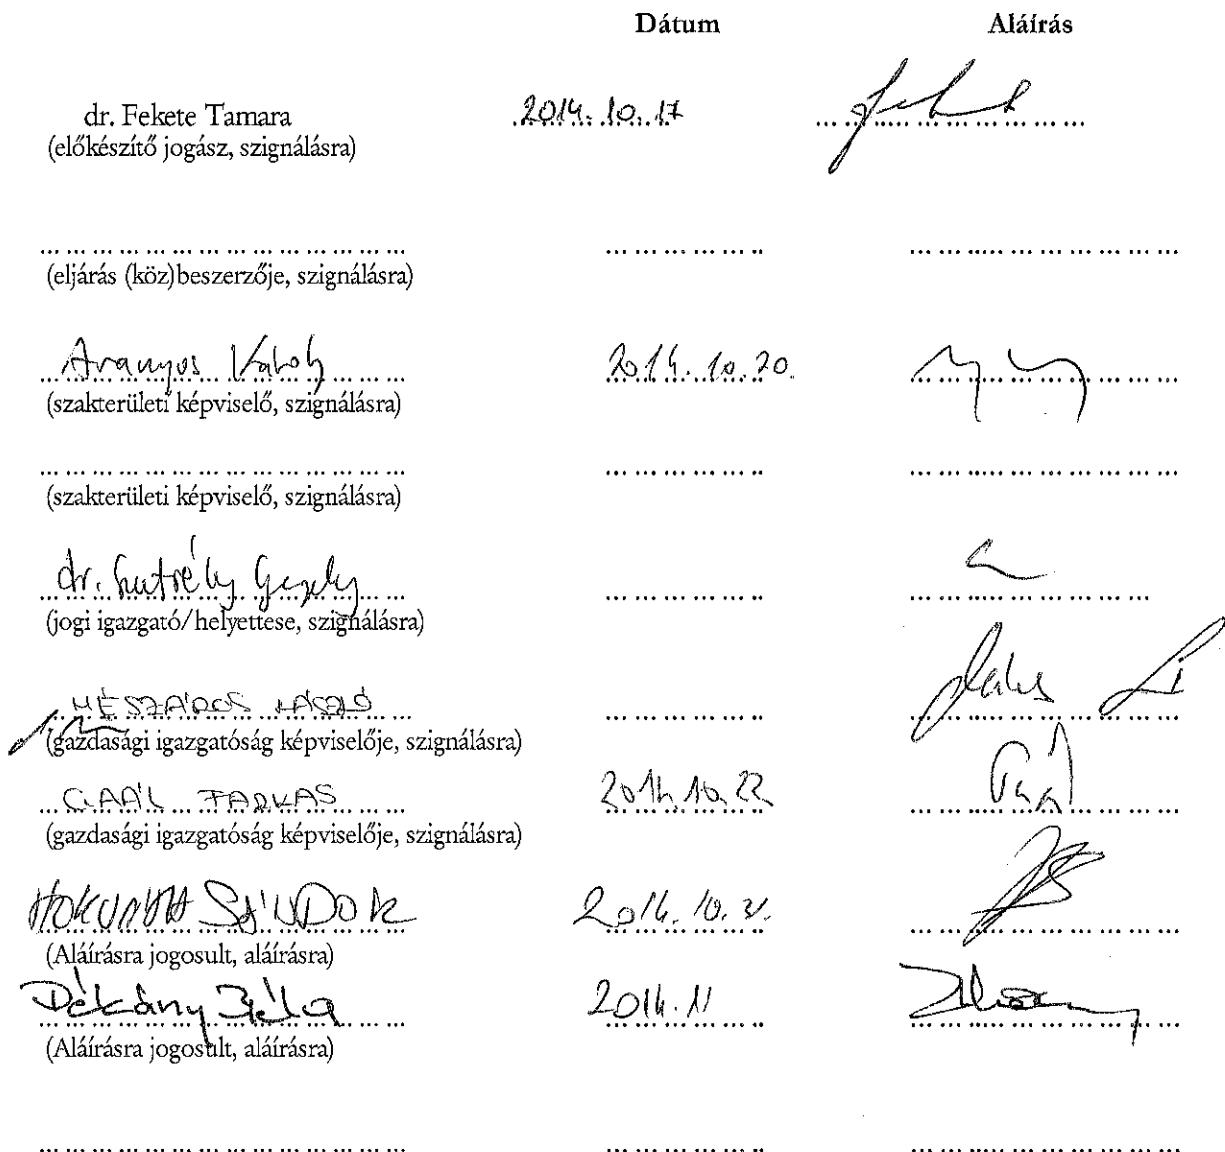 Dátum Aláírás
dr. Fekete Tamara 2014. 10. 17
(előkészítő jogász, szignálásra)
(eljárás (köz)beszerzője, szignálásra)
Aranyos Károly 2014. 10. 20.
(szakterületi képviselő, szignálásra)
(szakterületi képviselő, szignálásra)
dr. Gergely
(jogi igazgató/helyettese, szignálásra)
MÉSZÁROS LÁSZLÓ
(gazdasági igazgatóság képviselője, szignálásra)
GAÁL FARKAS 2014. 10. 22
(gazdasági igazgatóság képviselője, szignálásra)
HORVÁTH SÁNDOR 2014. 10.
(Aláírásra jogosult, aláírásra)
Dékány Béla 2014. 11
(Aláírásra jogosult, aláírásra)